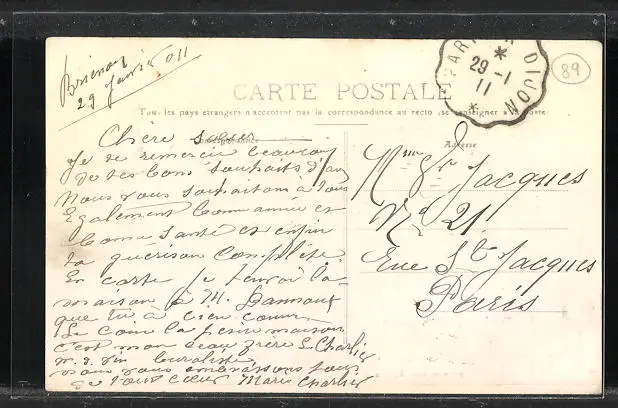 Brienon
29 janvier 011
PARIS A DIJON
29 -1
11
89
CARTE POSTALE
Tous les pays étrangers n'acceptent pas la correspondance au recto (se renseigner à la poste)
Correspondance
Adresse
Chère
Je te remercie beaucoup
de tes bons souhaits d'an
Nous vous souhaitons à tous
Egalement bonne année et
bonne santé et enfin
ta guérison complète.
En carte je t'envoi la
maison à M.
que tu a bien connu
Le coin la maison
c'est mon beau frère L. Charlier
m. d. vin
nous vous embrassons tous
de tout cœur Marie Charlier
Mme Vve Jacques
No 21.
Rue St Jacques
Paris